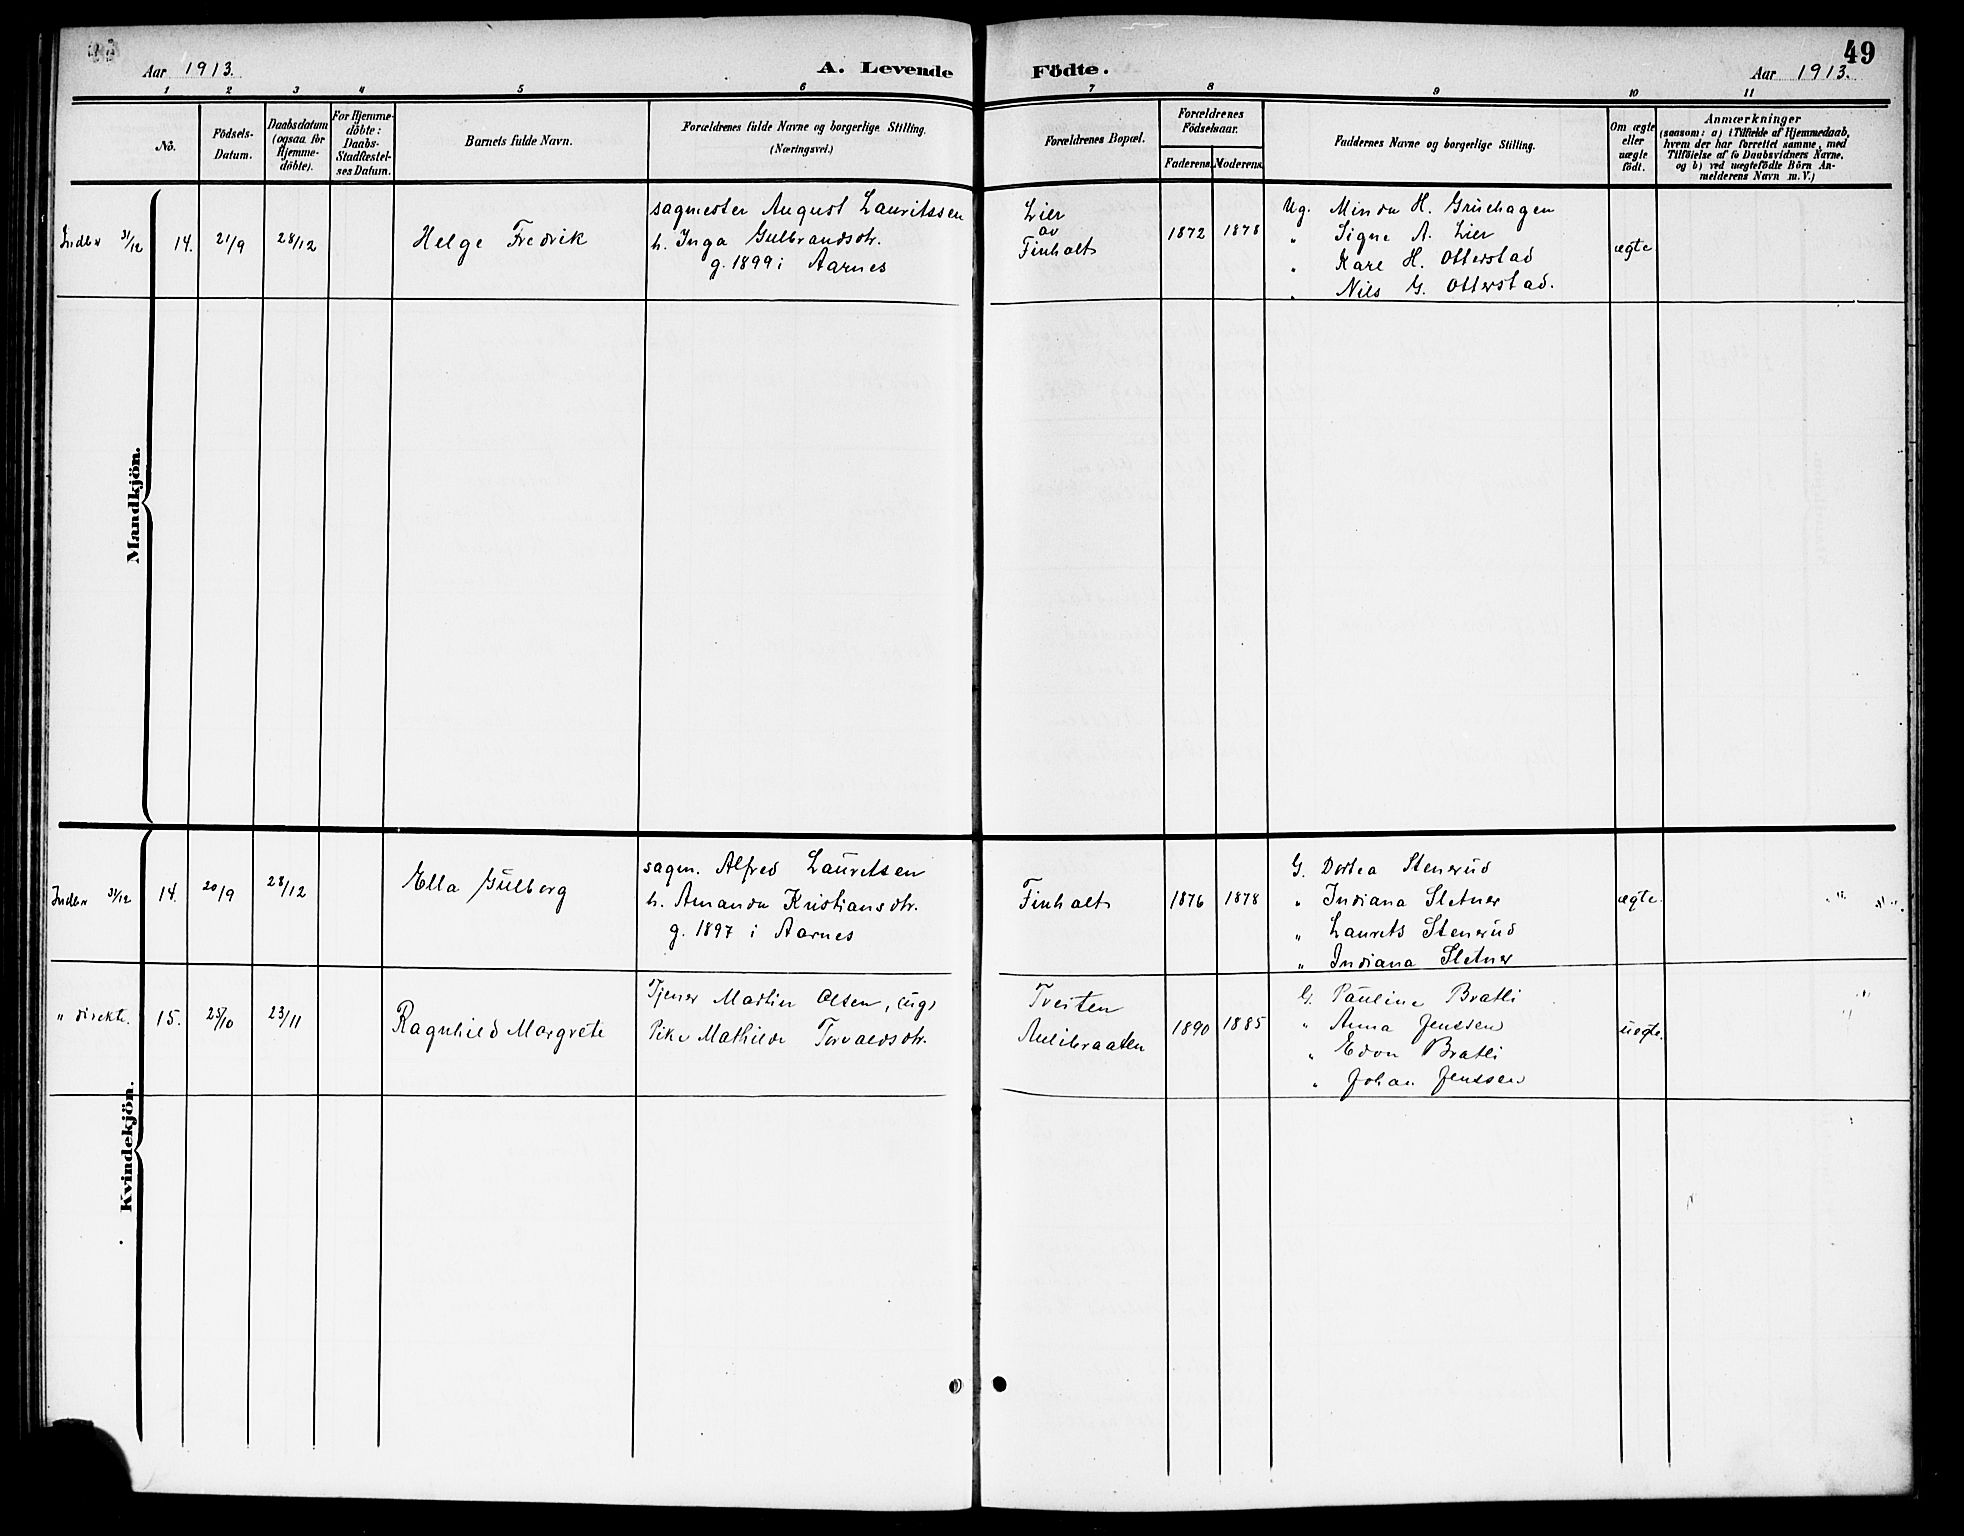 Aar 1913.
A. Levende Födte.
49
Aar 1913.
1 2 3 4 5 6 7 8 9 10 11
No.
Födsels-
Datum.
Daabsdatum
(ogsaa for
Hjemme-
döbte).
For Hjemme-
döbte:
Daabs-
Stadfæstel-
ses Datum.
Barnets fulde Navn.
Forældrenes fulde Navne og borgerlige Stilling.
(Næringsvei.)
Forældrenes Bopæl.
Forældrenes
Födselsaar.
Faderens
Moderens.
Faddernes Navne og borgerlige Stilling.
Om ægte
eller
uægte
födt.
Anmærkninger
(saasom: a) i Tilfælde af Hjemmedaab,
hvem der har forrettet samme, med
Tilföielse af to Daabsvidners Navne.
og b) ved uægtefödte Börn An-
melderens Navn m. V.)
Mandkjön.
Indbr 31/12
14.
21/9
28/12
Helge Fredrik
sagmester August Lauritssen
h. Inga Gulbrandsdtr.
g. 1899 i Aarnes
Lier
av
Finholt
1872
1878
Ug. Minda H. Gruehagen
" Signe A. Lier
" Kare H. Otterstad
" Nils G. Otterstad.
ægte
Kvindekjön.
Indbr 31/12
14.
20/9
28/12
Ella Gulborg
sagm. Alfred Lauritsen
h. Amanda Kristiansdtr.
g. 1897 i Aarnes
Finholt
1876
1878
G. Dortea Stenerud
" Indiana Sletner
" Laurits Stenerud
" Indiana Sletner
ægte.
" direkte.
15.
25/10
23/11
Ragnhild Margrete
Tjener Martin Olsen, (ug)
Pike Mathilde Torvaldsdtr.
Tveiten
Aulibraaten
1890
1885
G. Pauline Bratli
" Anna Jenssen
" Edon Bratli
" Johan Jenssen
uegte.